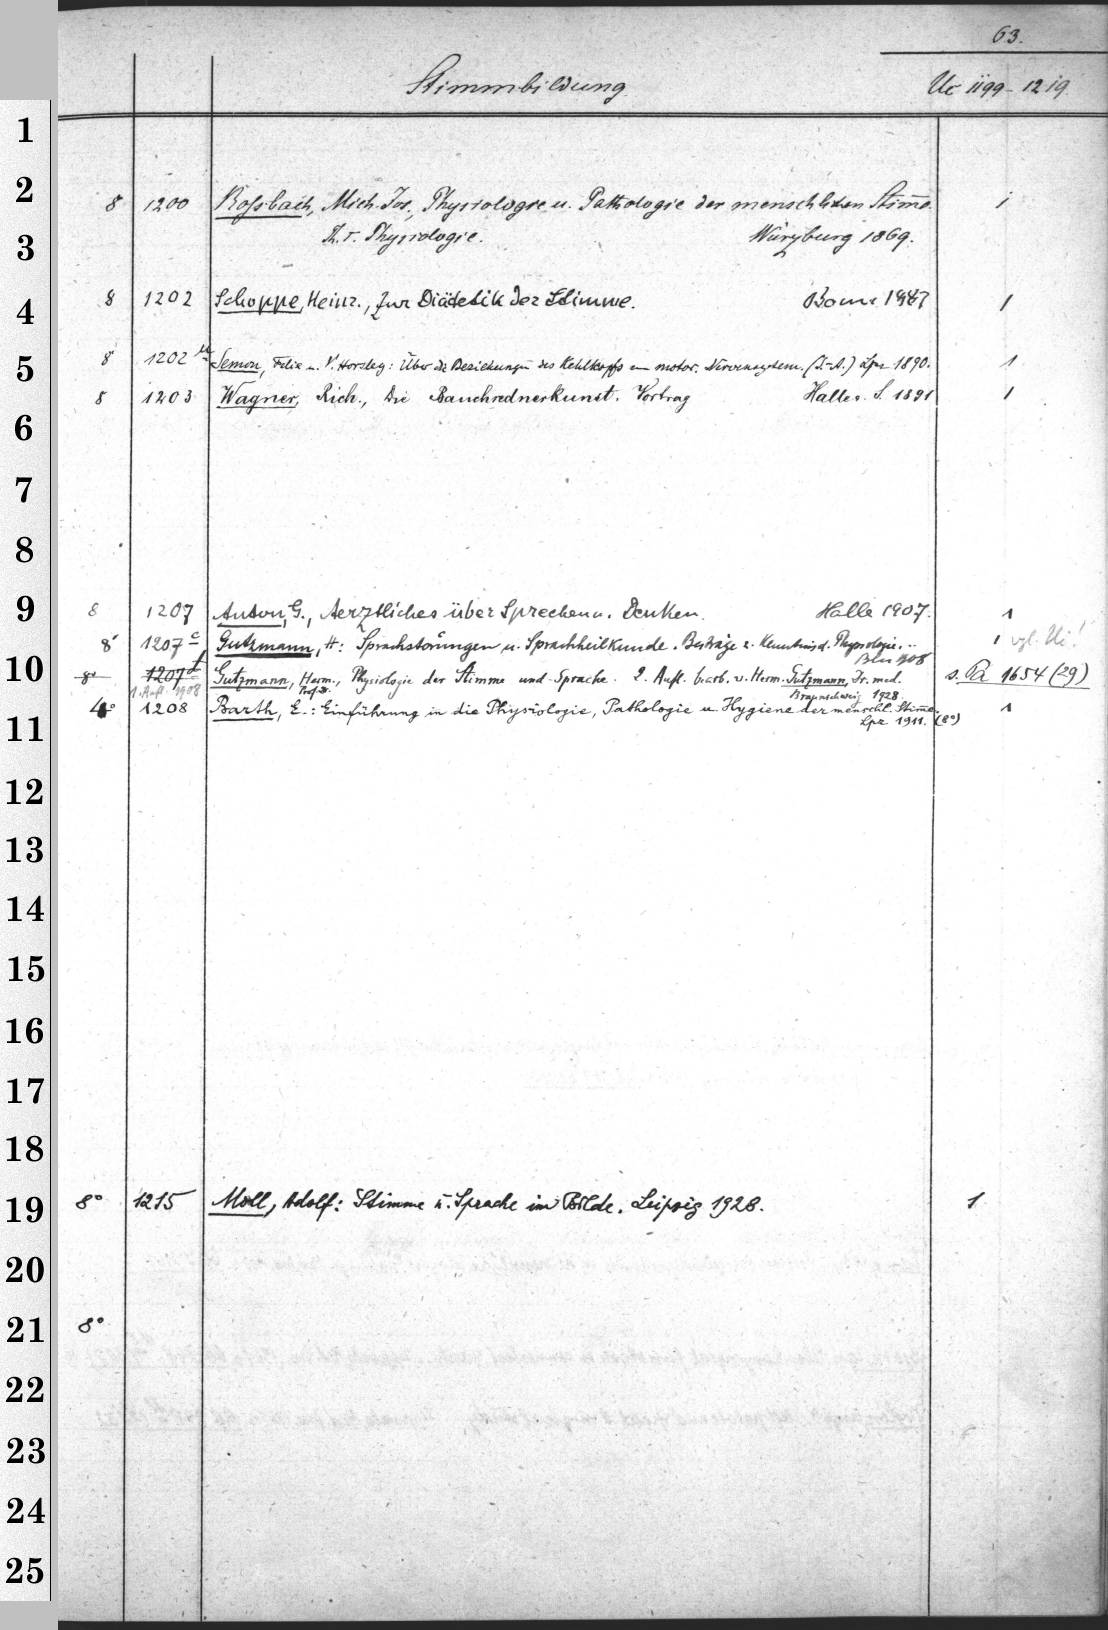 63.
Stimmbildung Uc 1199-1219.
1
2 8 1200 Rossbach, Mich. Jos., Physiologie u. Pathologie der menschlichen Stim̅e.
3 Th. I. Physiologie. Würzburg 1869.
4 8 1202 Schoppe, Heinr., Zur Diätetik der Stimme. Bonn. 1887 1
5 8 1202 Semon, Felix u. V. Horsley: Über die Beziehungen des Kehlkopfs zum motor. Nervensystem. (S.-A.) Lpz. 1890. 1
8 1203 Wagner, Rich., Die Bauchrednerkunst. Vortrag Halle a. S. 1891 1
6
7
8
9 8 1207 Anton, G., Aerztliches über Sprechen u. Denken. Halle 1907. 1
8° 1207 c Gutzmann, H: Sprachstörungen u. Sprachheilkunde. Beiträge z. Kenntnis d. Physiologie... 1 vgl. Ui!
Bln 1908
10 8° 1207 f Gutzmann, Herm., Physiologie der Stimme und Sprache. 2. Aufl. bearb. v. Herm. Gutzmann, Dr. med. s. Pa 1654 (29)
1. Aufl. 1908 Prof. Dr. Braunschweig 1928.
4° 1208 Barth, E.: Einführung in die Physiologie, Pathologie u. Hygiene der menschl. Stim̅e. 1
11 Lpz. 1911. (8°)
12
13
14
15
16
17
18
19 8° 1215 Moll, Adolf: Stimme u. Sprache im Bilde. Leipzig 1928. 1
20
21 8°
22
23
24
25